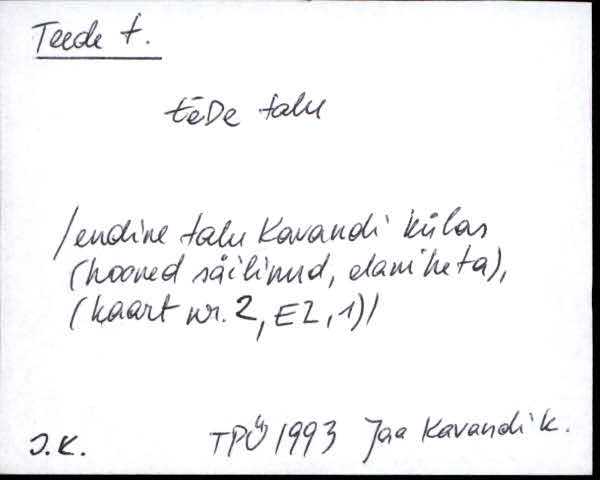 Teede t.
tēDe talu
/endine talu Kavandi külas
(hooned säilinud, elaniketa),
(kaart nr. 2, E2, 1)/
J.K. TPÜ 1993 Jaa Kavandi k.